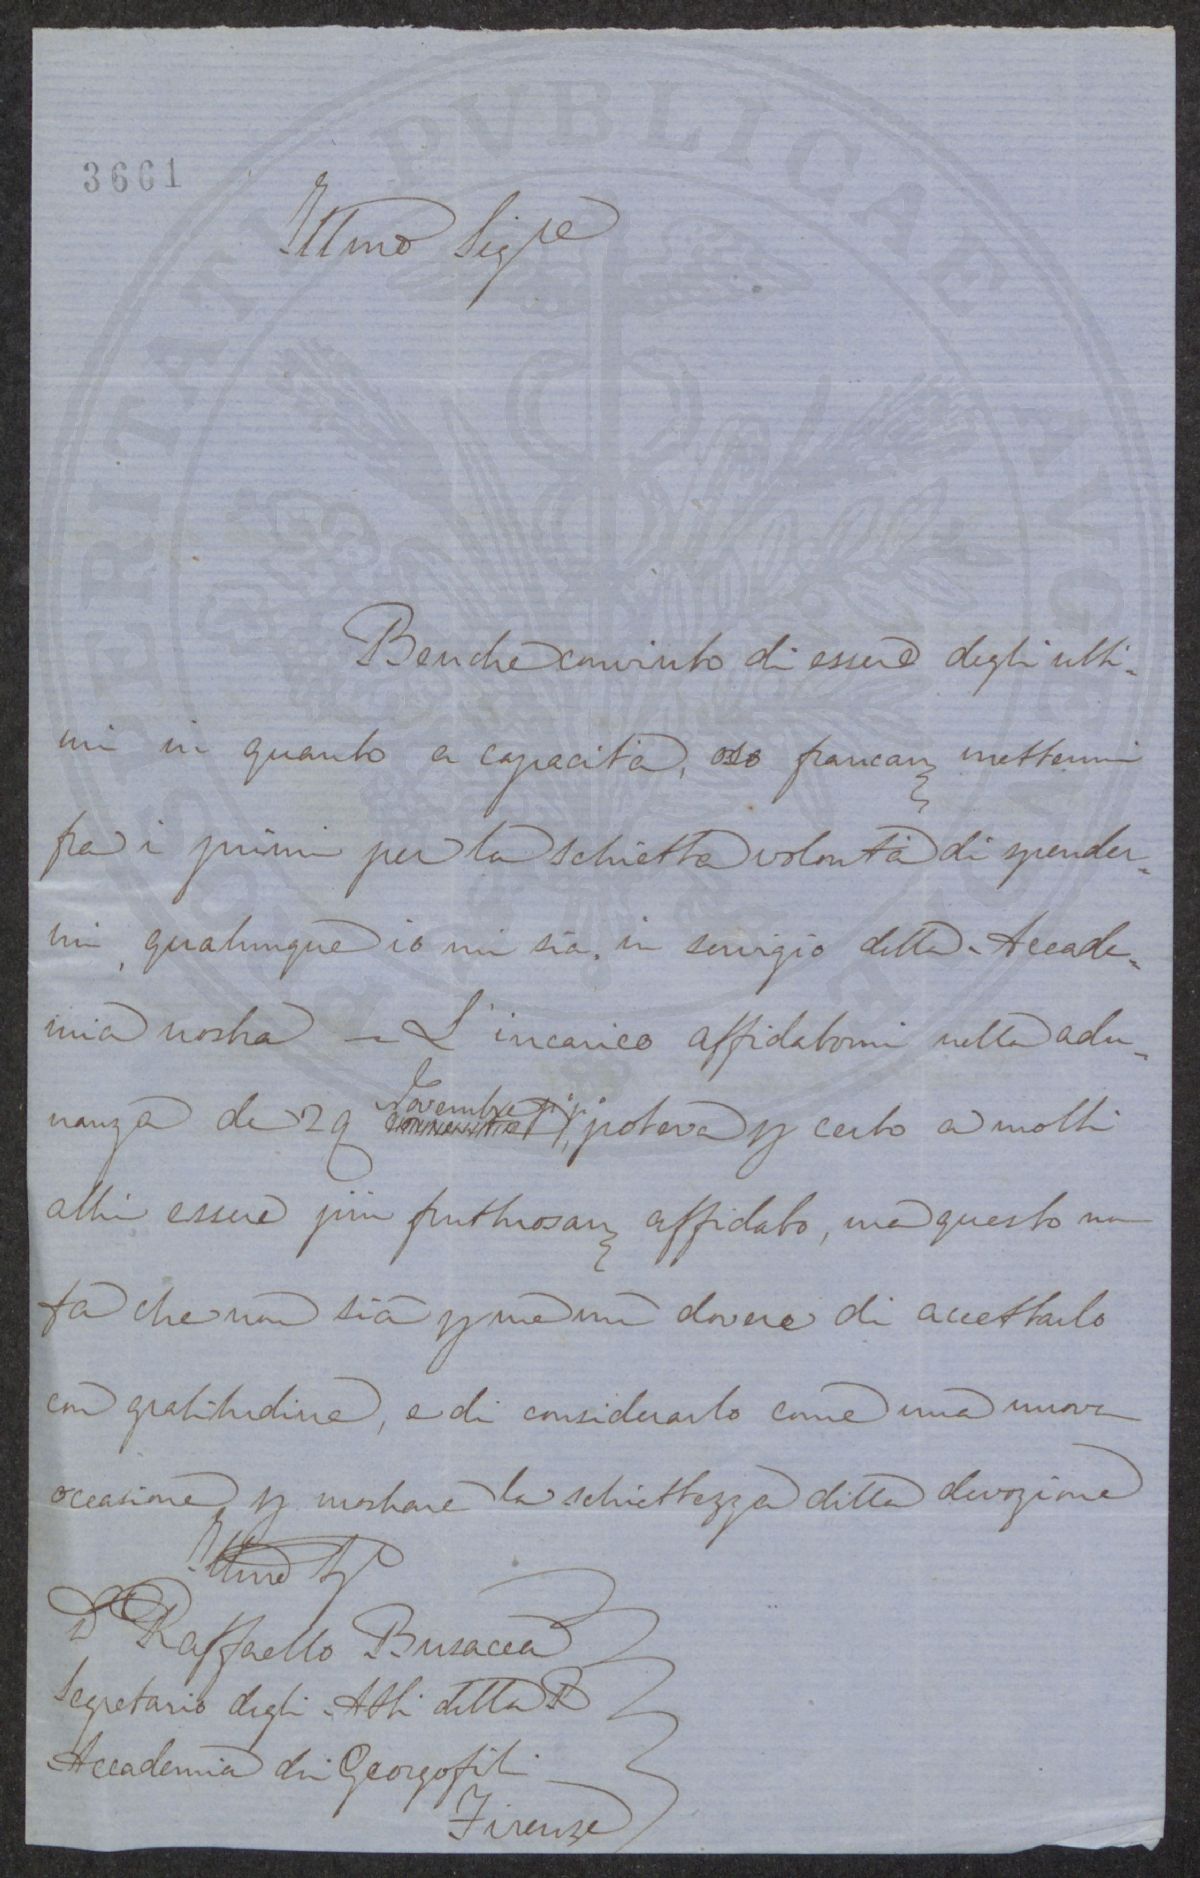 3661
Illmo Sigre
Benchè convinto di essere degli ulti-
mi in quanto a capacità, oso francam mettermi
fra i primi per la schietta volontà di spender-
mi, qualunque io mi sia, in servigio della Accade-
mia nostra — L'incarico affidatomi nella adu-
nanza de 29 Novembre pp poteva p certo a molti
altri essere più fruttuosam affidato, ma questo no
fa che non sia p me un dovere di accettarlo
con gratitudine, e di considerarlo come una nuova
occasione p mostrare la schiettezza della devozione
Illmo Sigre
Dr Raffaello Busacca
Segretario degli Atti della R
Accademia dei Georgofili
Firenze
PROSPERITATI PVBLICAE AVGENDAE